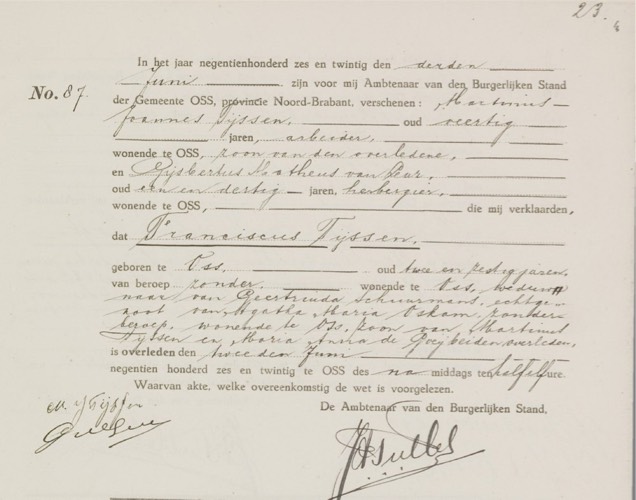 23.
In het jaar negentienhonderd zes en twintig den derden
No. 87. Juni zijn voor mij Ambtenaar van den Burgerlijken Stand
der Gemeente OSS, provincie Noord-Brabant, verschenen: Martinus
Joannes Tijssen, oud veertig
jaren, arbeider,
wonende te OSS, zoon van den overledene,
en Gijsbertus Matheus van
oud een en dertig jaren, herbergier,
wonende te OSS, die mij verklaarden,
dat Franciscus Tijssen,
geboren te Oss, oud twee en zestig jaren,
van beroep zonder, wonende te Oss, weduw
naar van Geertruida Schuurmans, echtge-
noot van Agatha Maria Oskam, zonder
beroep, wonende te Oss, zoon van Martinus
Tijssen en Maria Anna de Goey, beiden overleden,
is overleden den tweeden Juni
negentien honderd zes en twintig te OSS des na middags ten half elf ure.
Waarvan akte, welke overeenkomstig de wet is voorgelezen.
De Ambtenaar van den Burgerlijken Stand,
M J Tijssen